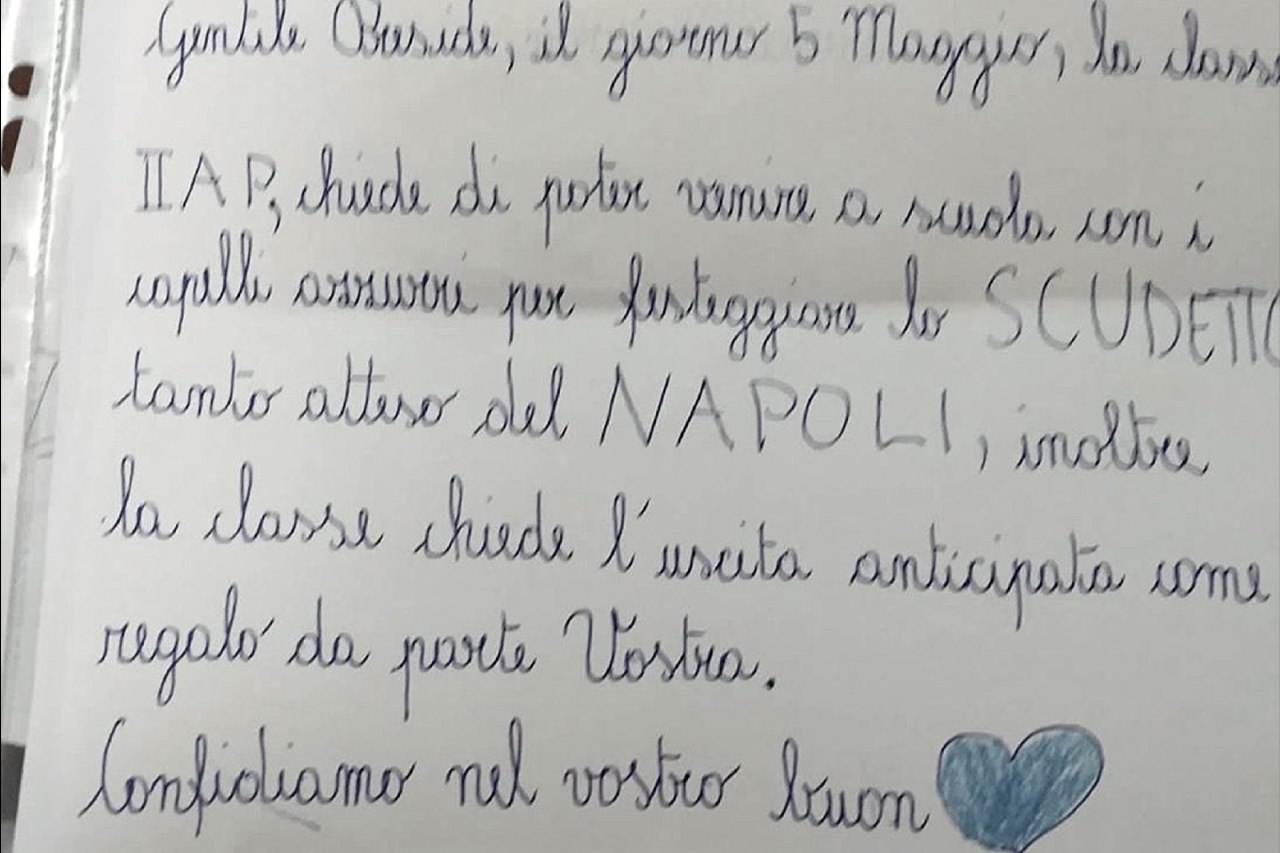 Gentile Preside, il giorno 5 Maggio, la classe
II A P, chiede di poter venire a scuola con i
capelli azzurri per festeggiare lo SCUDETTO
tanto atteso del NAPOLI, inoltre
la classe chiede l'uscita anticipata come
regalo da parte Vostra.
Confidiamo nel vostro buon